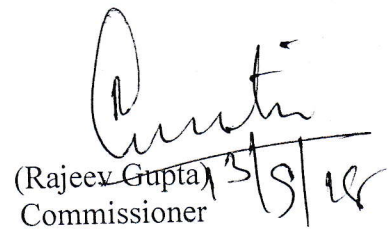 (Rajeev Gupta) 13/8/18
Commissioner